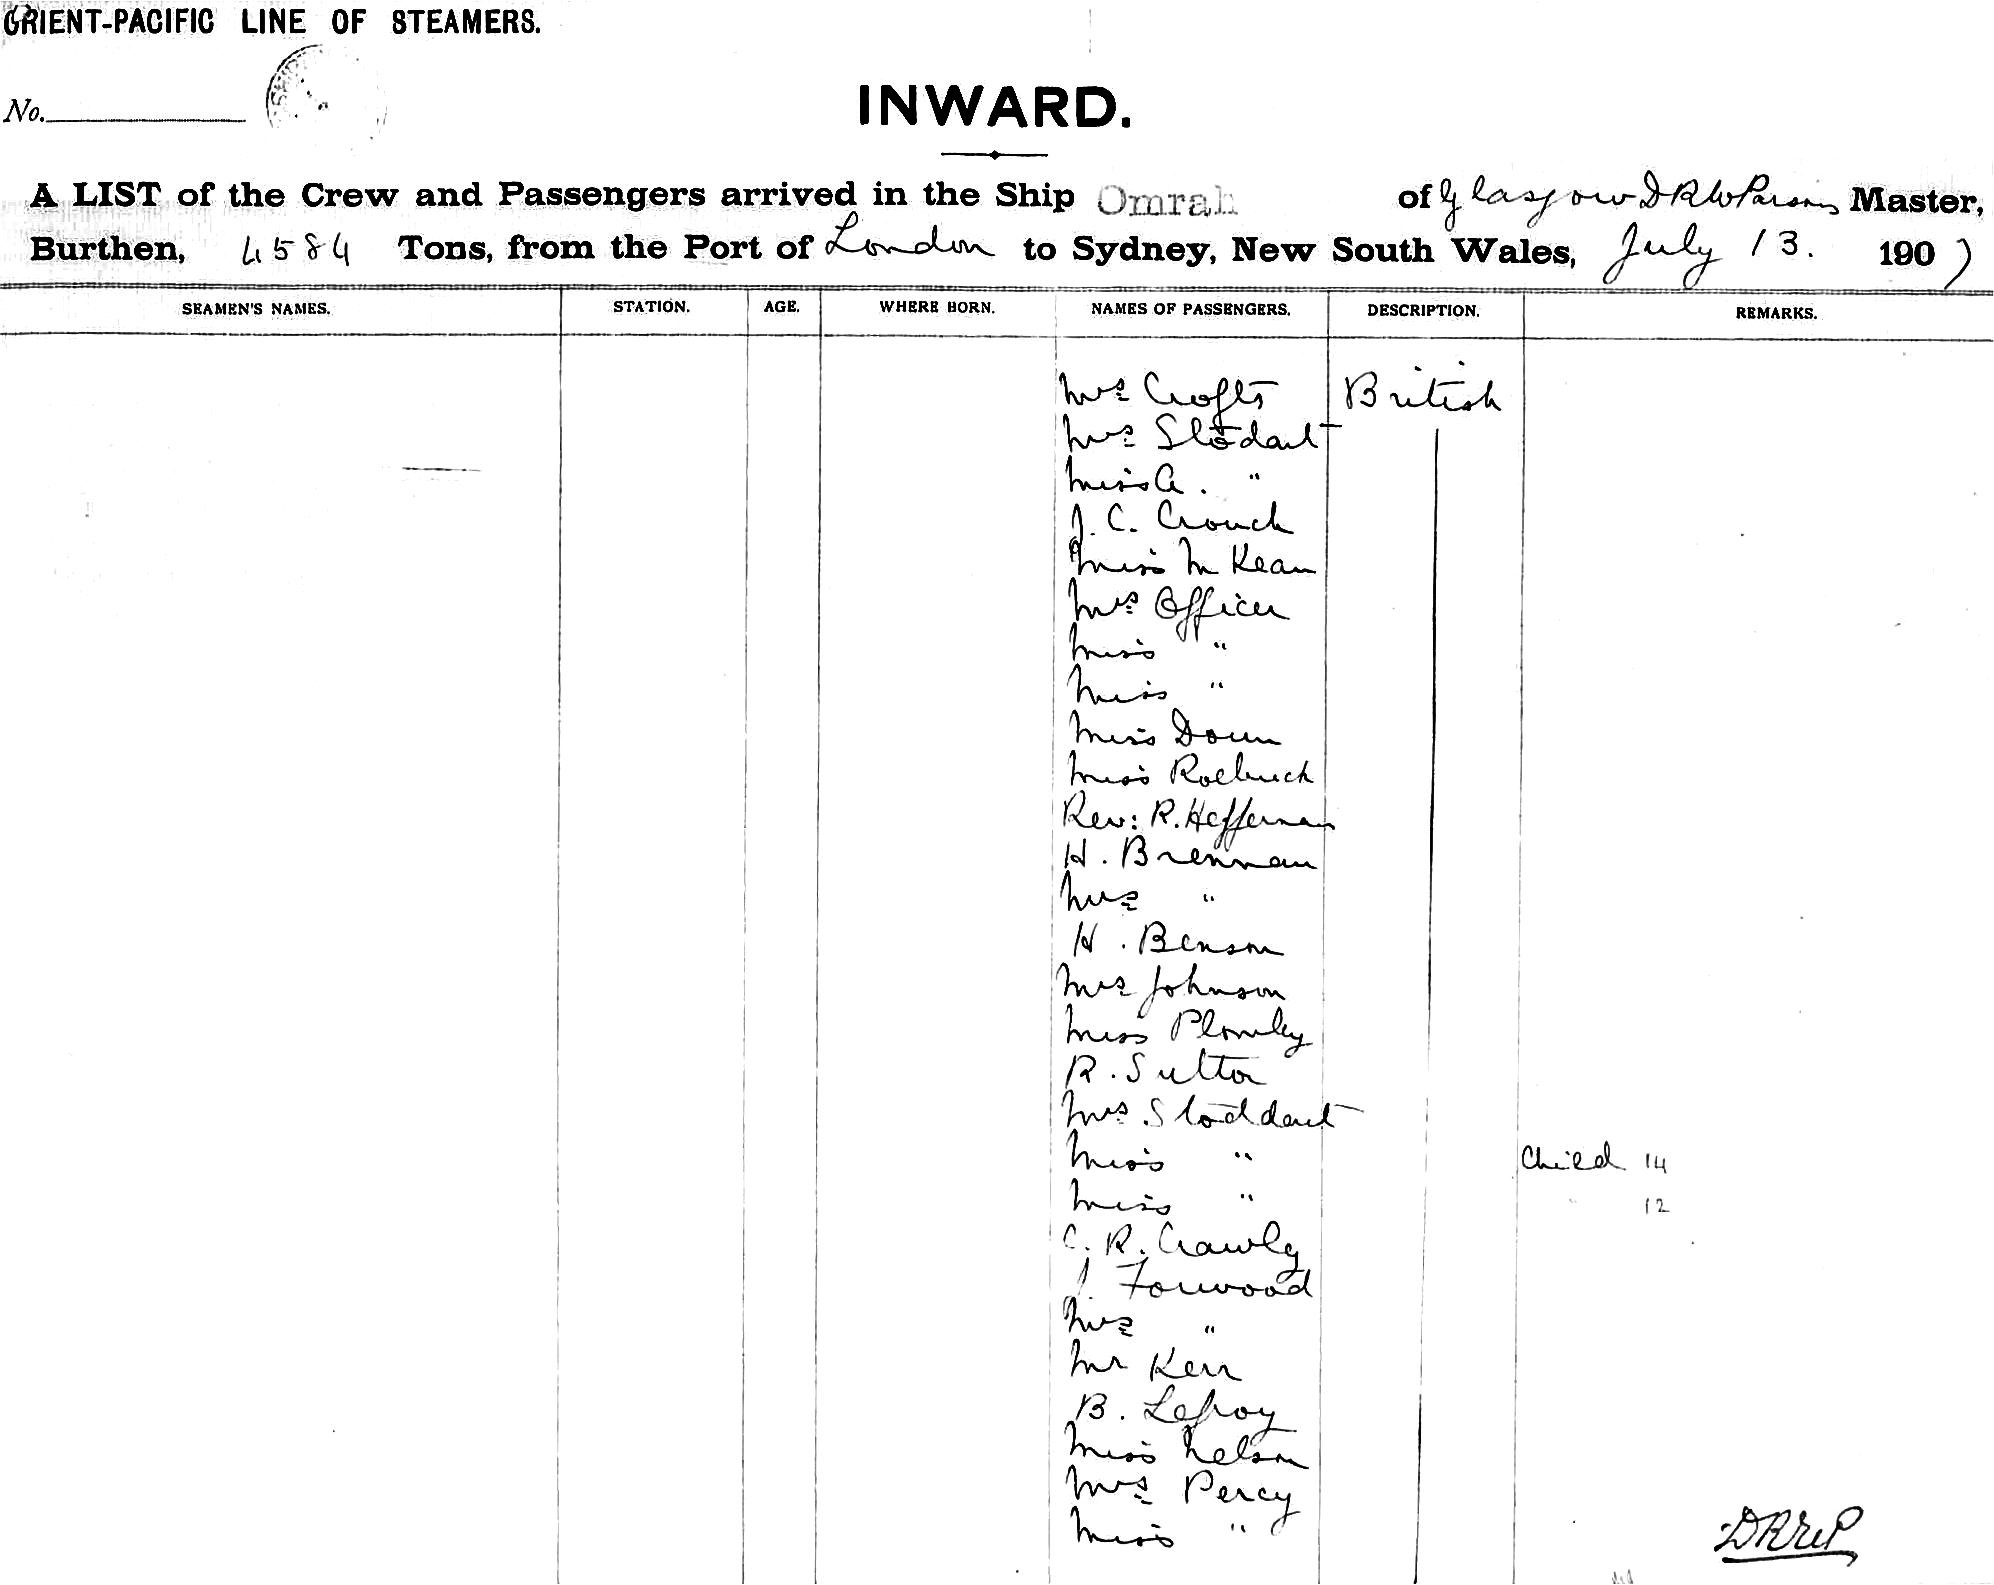 ORIENT-PACIFIC LINE OF STEAMERS.
No.
INWARD.
A LIST of the Crew and Passengers arrived in the Ship Omrah of Glasgow D R W Parsons Master,
Burthen, 4584 Tons, from the Port of London to Sydney, New South Wales, July 13. 1907
SEAMEN'S NAMES. STATION. AGE. WHERE BORN. NAMES OF PASSENGERS. DESCRIPTION. REMARKS.
Mrs Crofts British
Mrs Stodart
Miss A. "
J. C. Crouch
Miss McKean
Mrs Officer
Miss "
Miss "
Miss
Miss Roebuck
Rev: R. Heffernan
H. Brennan
Mrs "
H. Benson
Mrs Johnson
Miss Plomley
R. Sutton
Mrs Stoddart
Miss " Child 14
Miss " " 12
C. R. Crawly
J. Forwood
Mrs "
Mr Kerr
B. Lefroy
Miss Nelson
Mrs Percy
Miss "